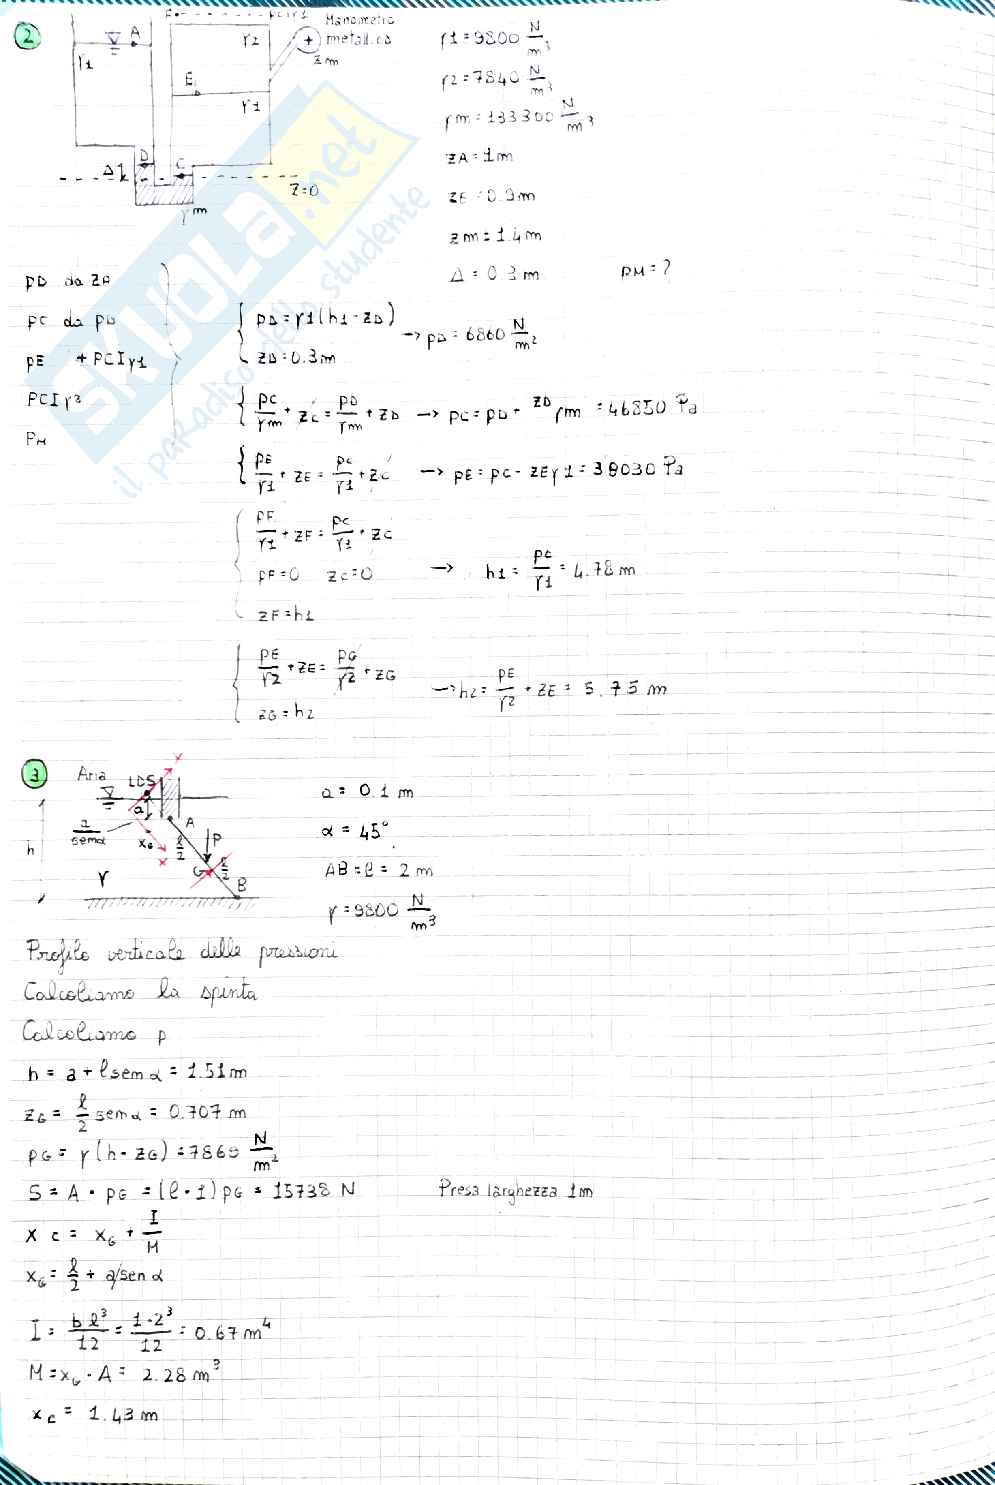 2
A
γ1
γ2
E
γ1
D
C
Δ
γm
z=0
Manometro
metallico
zm
γ1=9800 N/m³
γ2=7840 N/m³
γm=133300 N/m³
zA=1m
zE=0.9m
zm=1.4m
Δ=0.3m
pM=?
pD da zA
pC da pD
pE + PCIγ1
PCIγ2
PM
pD=γ1(h1-zD) → pD=6860 N/m²
zD=0.3m
pC/γm + zC = pD/γm + zD → pC=pD+ zD γm = 46850 Pa
pE/γ1 + zE = pC/γ1 + zC → pE=pC-zEγ1=38030 Pa
pF/γ1 + zF = pC/γ1 + zC
pF=0 zC=0 → h1= pC/γ1 = 4.78m
zF=h1
pE/γ2 + zE = pG/γ2 + zG
→ h2= pE/γ2 + zE = 5.75 m
zG=h2
SKUOLA.net
il paradiso dello studente
3
Aria
LDS
x
a
a/senα
A
xG
l/2
P
h
x
G
l/2
γ
B
a= 0.1 m
α= 45°
AB=l= 2 m
γ=9800 N/m³
Profilo verticale delle pressioni
Calcoliamo la spinta
Calcoliamo p
h= a+lsenα=1.51m
zG= l/2 senα= 0.707 m
pG= γ(h-zG)=7869 N/m²
S=A·pG=(l·1)pG=15738 N
Presa larghezza 1m
xc= xG + I/M
xG= l/2 + a/senα
I= bl³/12 = 1·2³/12 = 0.67m⁴
M=xG·A= 2.28m³
xc= 1.43 m